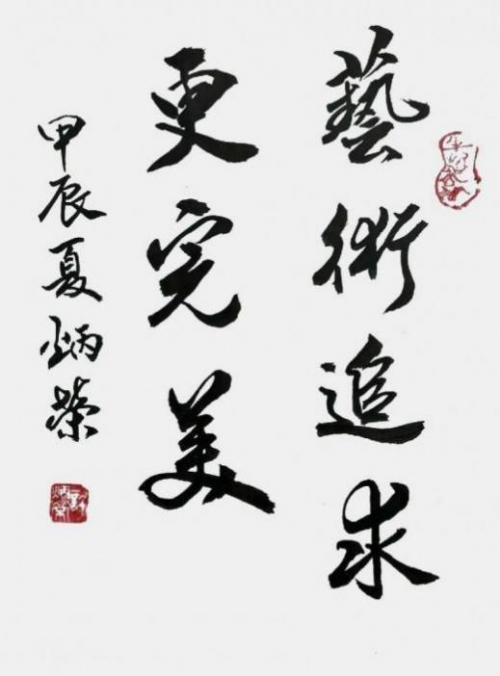 藝術追求
更完美
甲辰夏炳榮